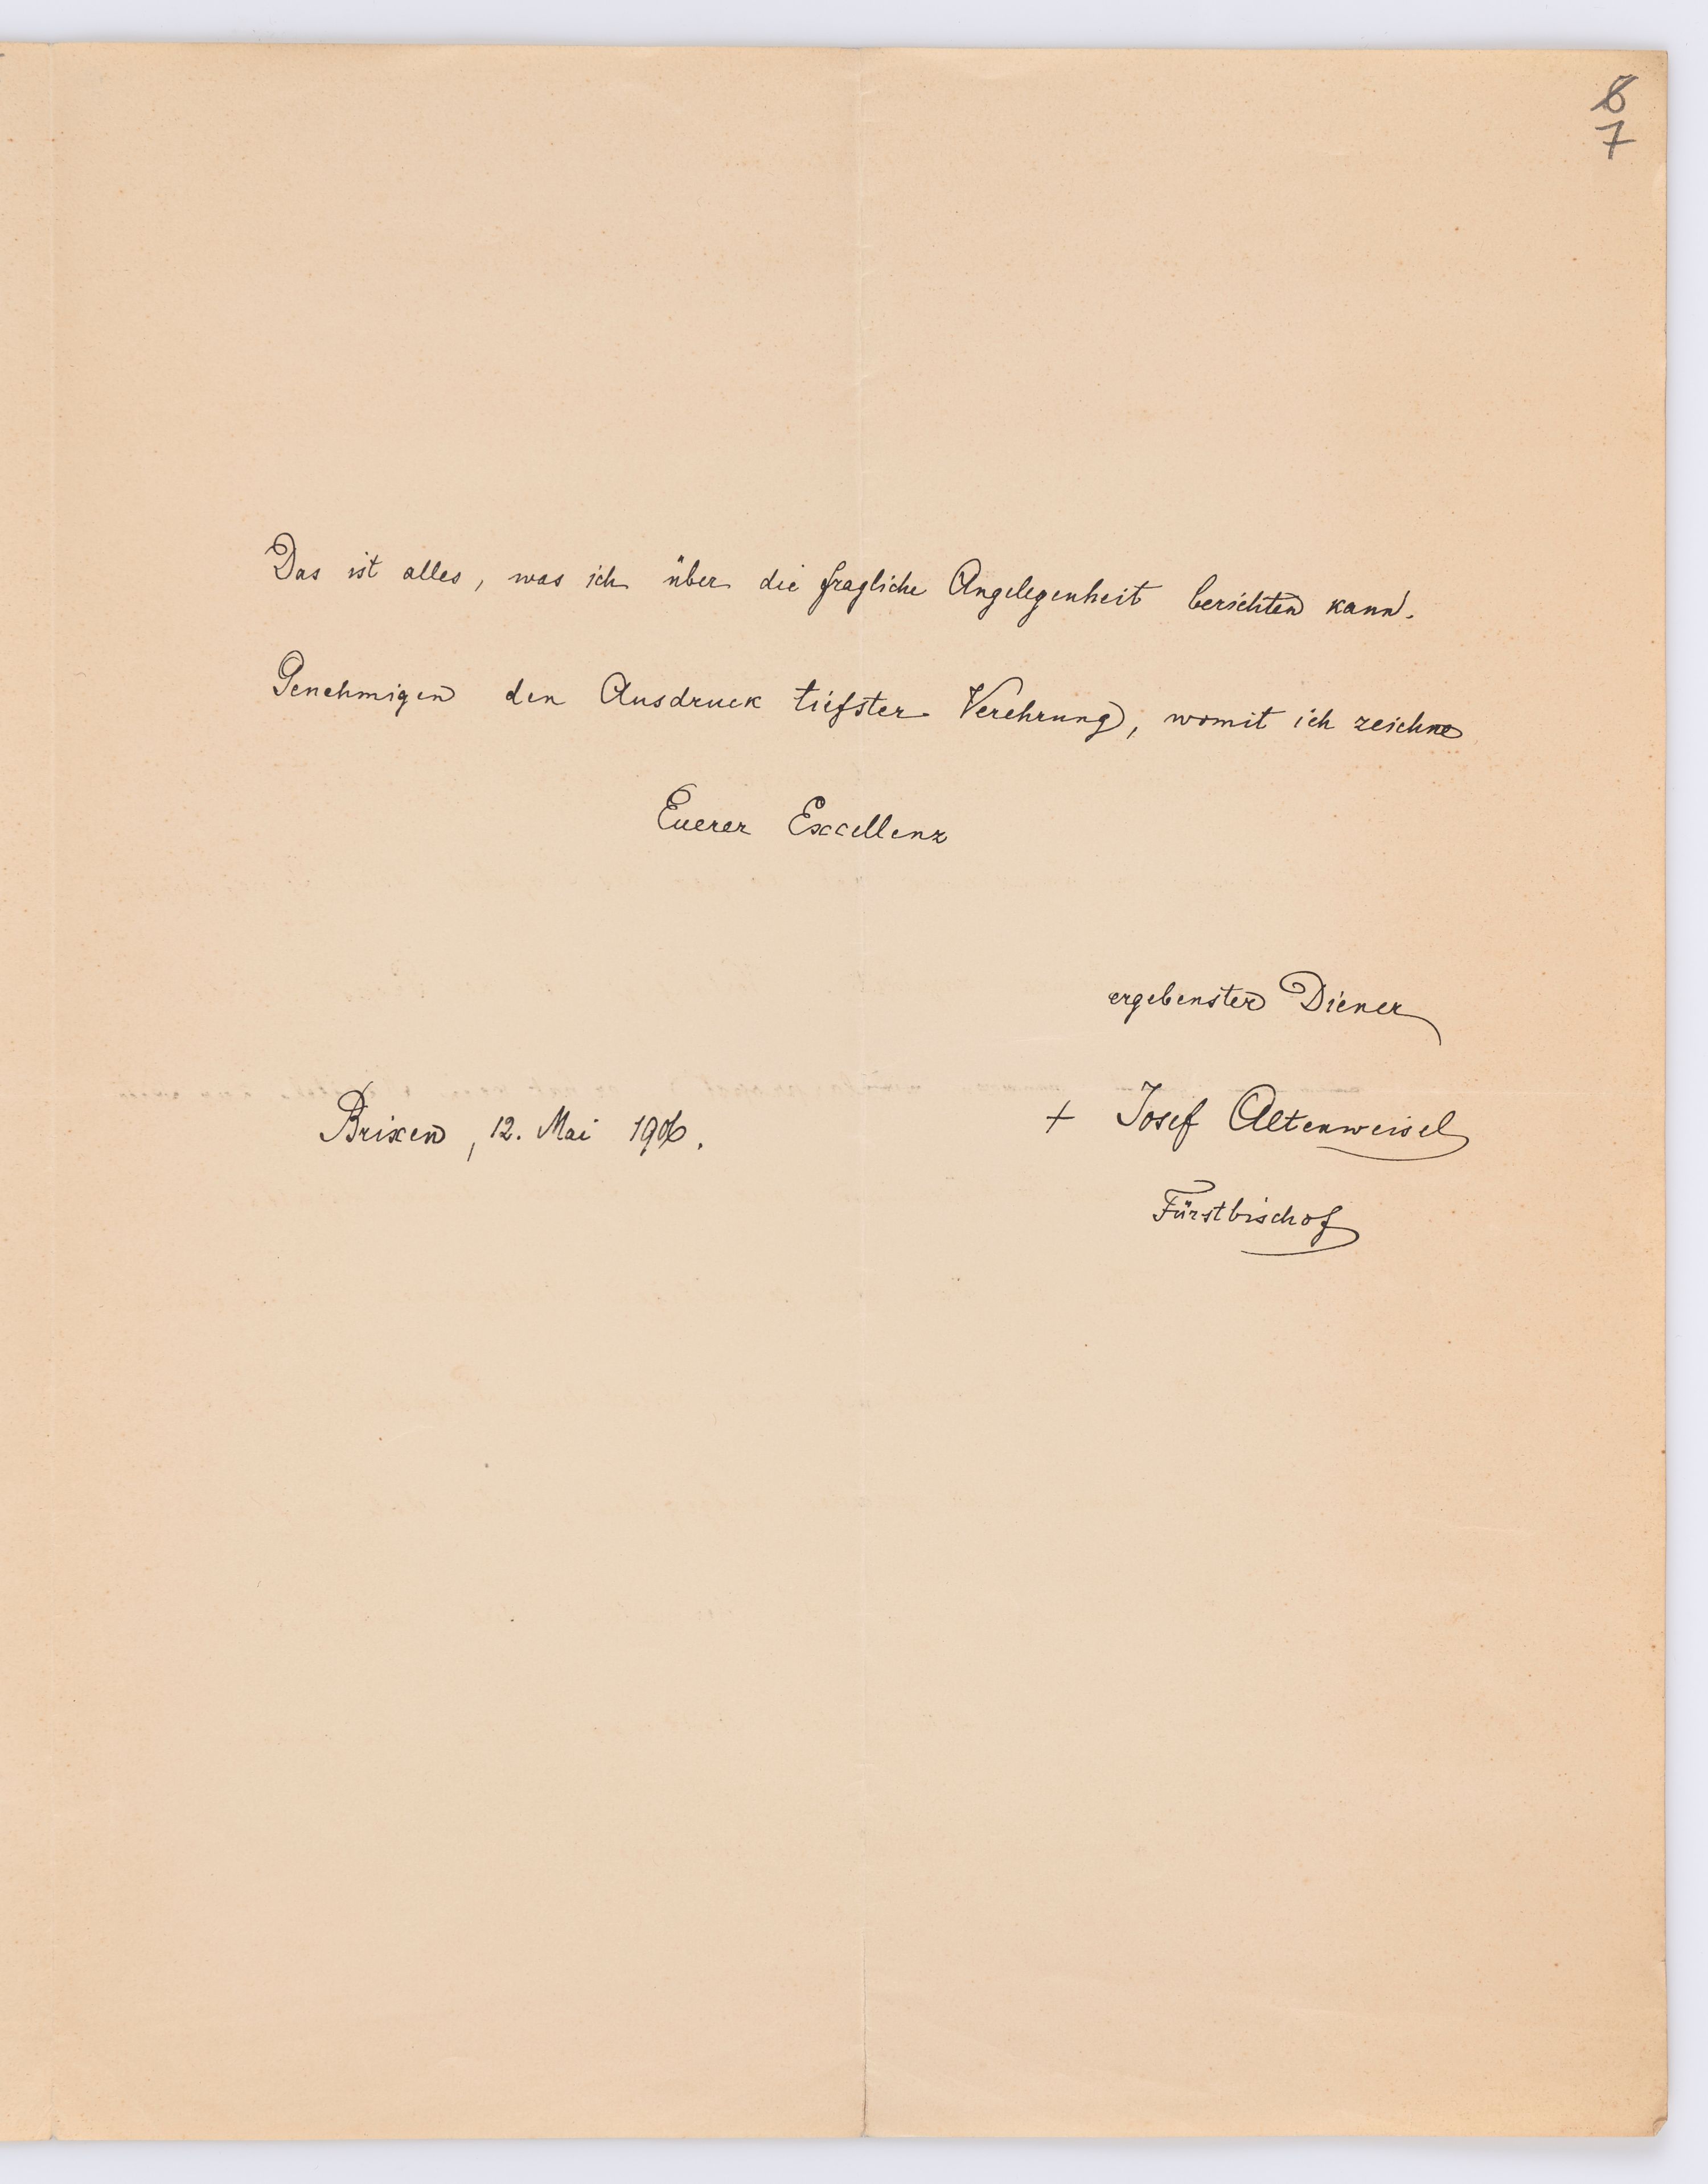 6
7
Das ist alles, was ich über die fragliche Angelegenheit berichten kann.
Genehmigen den Ausdruck tiefster Verehrung, womit ich zeichne
Euerer Excellenz
ergebenster Diener
Brixen, 12. Mai 1906.
+ Josef Altenweisel
Fürstbischof